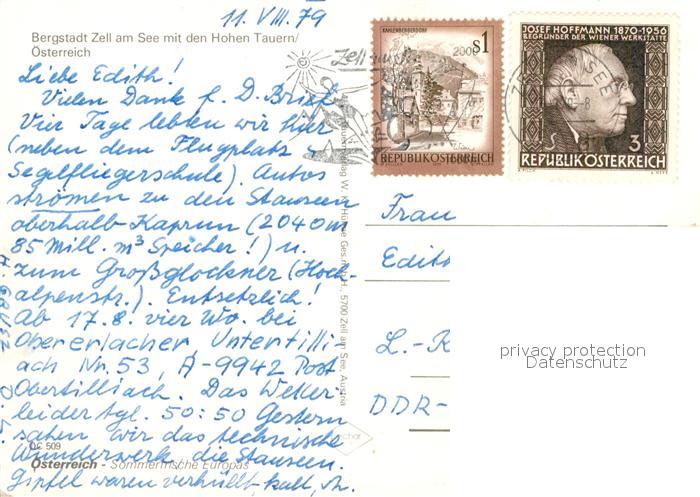 11. VIII. 79
Bergstadt Zell am See mit den Hohen Tauern/
Österreich
Liebe Edith!
Vielen Dank f. D. Brief.
Vier Tage lebten wir hier
(neben dem Flugplatz u.
Segelfliegerschule). Autos
strömen zu den Stauseen
oberhalb Kaprun (2040 m
85 Mill. m³ Speicher!) u.
zum Großglockner (Hoch-
alpenstr.). Entsetzlich!
Ab 17.8. vier Wo. bei
Obererlacher Untertilli-
ach Nr. 53, A-9942 Post
Obertilliach. Das Wetter
leider tgl. 50:50 Gestern
sahen wir das technische
Wunderwerk, die Stauseen.
Gipfel waren verhüllt kalt,
DC 509
Österreich - Sommerfrische Europas
Ges.m.b.H., 5700 Zell am See, Austria
KAHLENBERGERDORF
S1
REPUBLIK ÖSTERREICH
JOSEF HOFFMANN 1870-1956
BEGRÜNDER DER WIENER WERKSTÄTTE
3
REPUBLIK ÖSTERREICH
Zell am See
Frau
Edith
L.-K
DDR-
privacy protection
Datenschutz